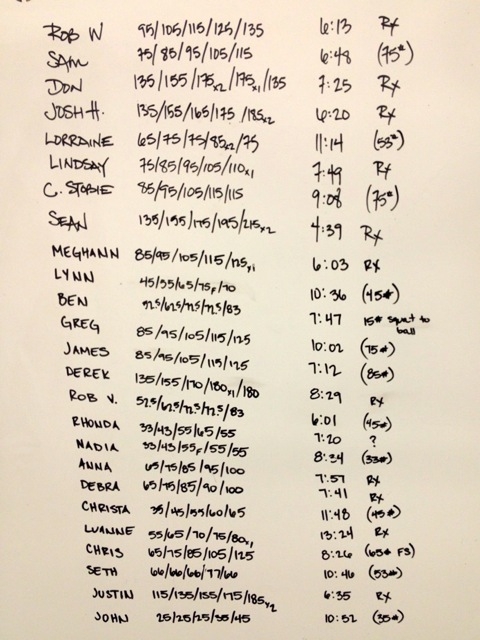 ROB W 95/105/115/125/135 6:13 Rx
SAM 75/85/95/105/115 6:48 (75#)
DON 135/155/175x2/175x1/135 7:25 Rx
JOSH H. 135/155/165/175/185x2 6:20 Rx
LORRAINE 65/75/75/85x2/75 11:14 (53#)
LINDSAY 75/85/95/105/110x1 7:49 Rx
C. STOBIE 85/95/105/115/115 9:08 (75#)
SEAN 135/155/175/195/215x2 4:39 Rx
MEGHANN 85/95/105/115/125x1 6:03 Rx
LYNN 45/55/65/75F/70 10:36 (45#)
BEN 52.5/62.5/72.5/72.5/83 7:47 15# squat to ball
GREG 85/95/105/115/125 10:02 (75#)
JAMES 85/95/105/115/125 7:12 (85#)
DEREK 135/155/170/180x1/180 8:29 Rx
ROB V. 52.5/62.5/72.5/72.5/83 6:01 (45#)
RHONDA 33/43/55/65/55 7:20 ?
NADIA 33/43/55F/55/55 8:34 (33#)
ANNA 65/75/85/95/100 7:57 Rx
DEBRA 65/75/85/90/100 7:41 Rx
CHRISTA 35/45/55/60/65 11:48 (45#)
LUANNE 55/65/70/75/80x1 13:24 Rx
CHRIS 65/75/85/105/125 8:26 (65# FS)
SETH 66/66/66/77/66 10:46 (53#)
JUSTIN 115/135/155/175/185x2 6:35 Rx
JOHN 25/25/25/35/45 10:52 (35#)